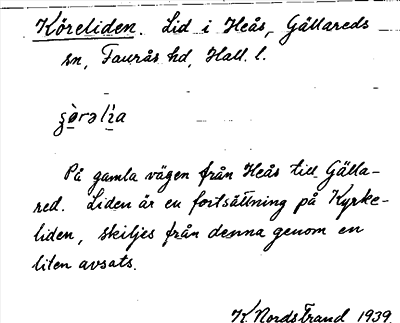 Köreliden. Lid i Heås, Gällareds
sn, Faurås hd, Hall. l.
På gamla vägen från Heås till Gälla-
red. Liden är en fortsättning på Kyrke-
liden, skiljes från denna genom en
liten avsats.
K. Nordstrand 1939.